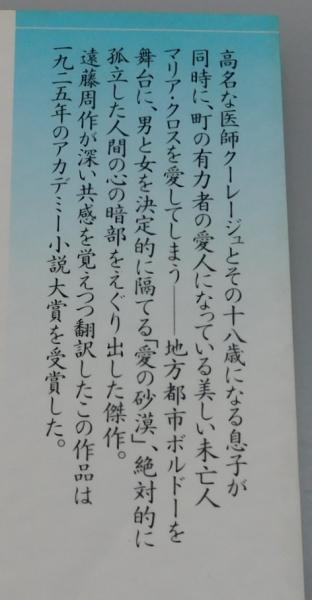 高名な医師クーレージュとその十八歳になる息子が
同時に、町の有力者の愛人になっている美しい未亡人
マリア・クロスを愛してしまう――地方都市ボルドーを
舞台に、男と女を決定的に隔てる「愛の砂漠」、絶対的に
孤立した人間の心の暗部をえぐり出した傑作。
遠藤周作が深い共感を覚えつつ翻訳したこの作品は
一九二五年のアカデミー小説大賞を受賞した。